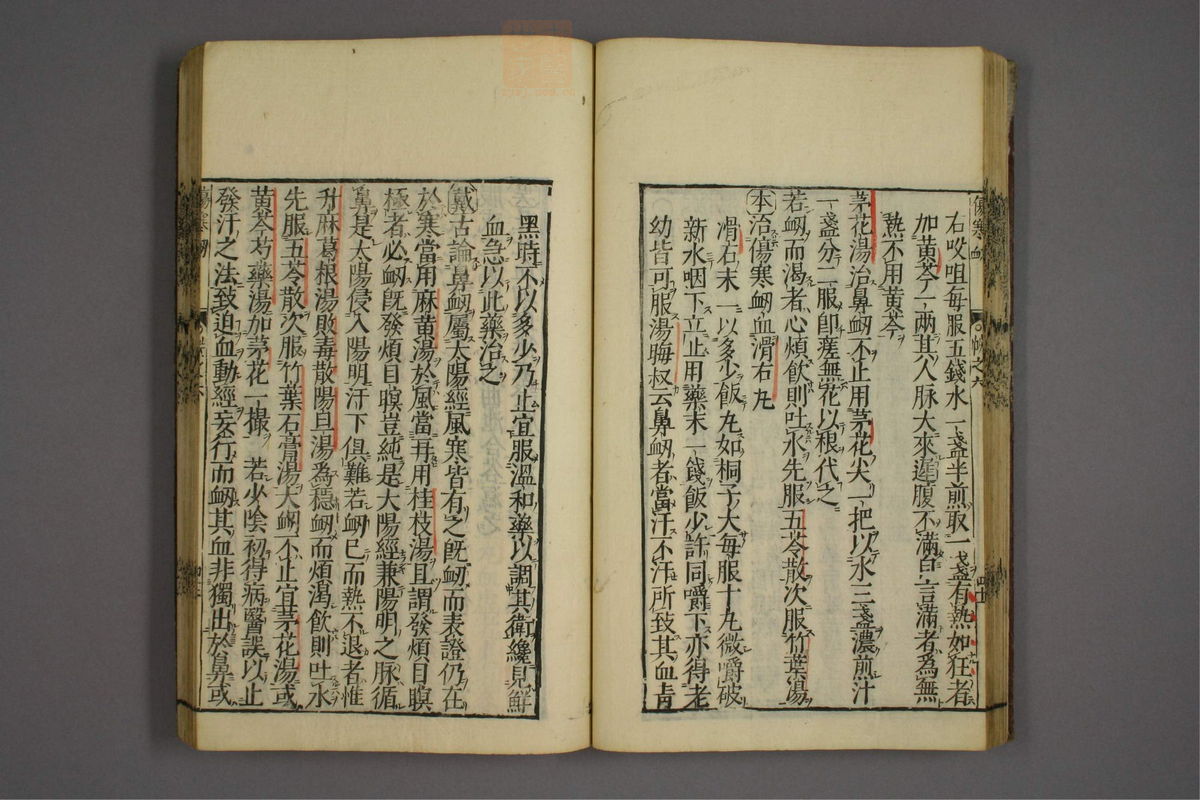 右㕮咀每服五錢水一盞半煎取一盞有熱如狂者
加黃芩一兩其人脉大來遲腹不滿自言滿者爲無
熱不用黃芩
茅花湯治鼻衂不止用茅花尖一把以水三盞濃煎汁
一盞分二服卽瘥無花以根代之
若衂而渴者心煩飲則吐水先服五苓散次服竹葉湯
本治傷寒衂血滑石丸
滑石末一以多少飯丸如桐子大每服十丸微嚼破
新水咽下立止用藥末一錢飯少許同嚼下亦得老
幼皆可服湯晦叔云鼻衂者當汗不汗所致其血青
黑時不以多少乃止宜服溫和藥以調其衛纔見鮮
血急以此藥治之
戴古論鼻衂屬太陽經風寒皆有之旣衂而表證仍在
於寒當用麻黃湯於風當再用桂枝湯且謂發煩目瞑
極者必衂旣發煩目瞑豈純是大陽經兼陽明之脉循
鼻是太陽侵入陽明汗下俱難若衂已而熱不退者惟
升麻葛根湯敗毒散陽旦湯爲穩衂而煩渴飲則吐水
先服五苓散次服竹葉石膏湯大衂不止宜茅花湯或
黃芩芍藥湯加茅花一撮 若少陰初得病醫誤以止
發汗之法致迫血動經妄行而衂其血非獨出於鼻或